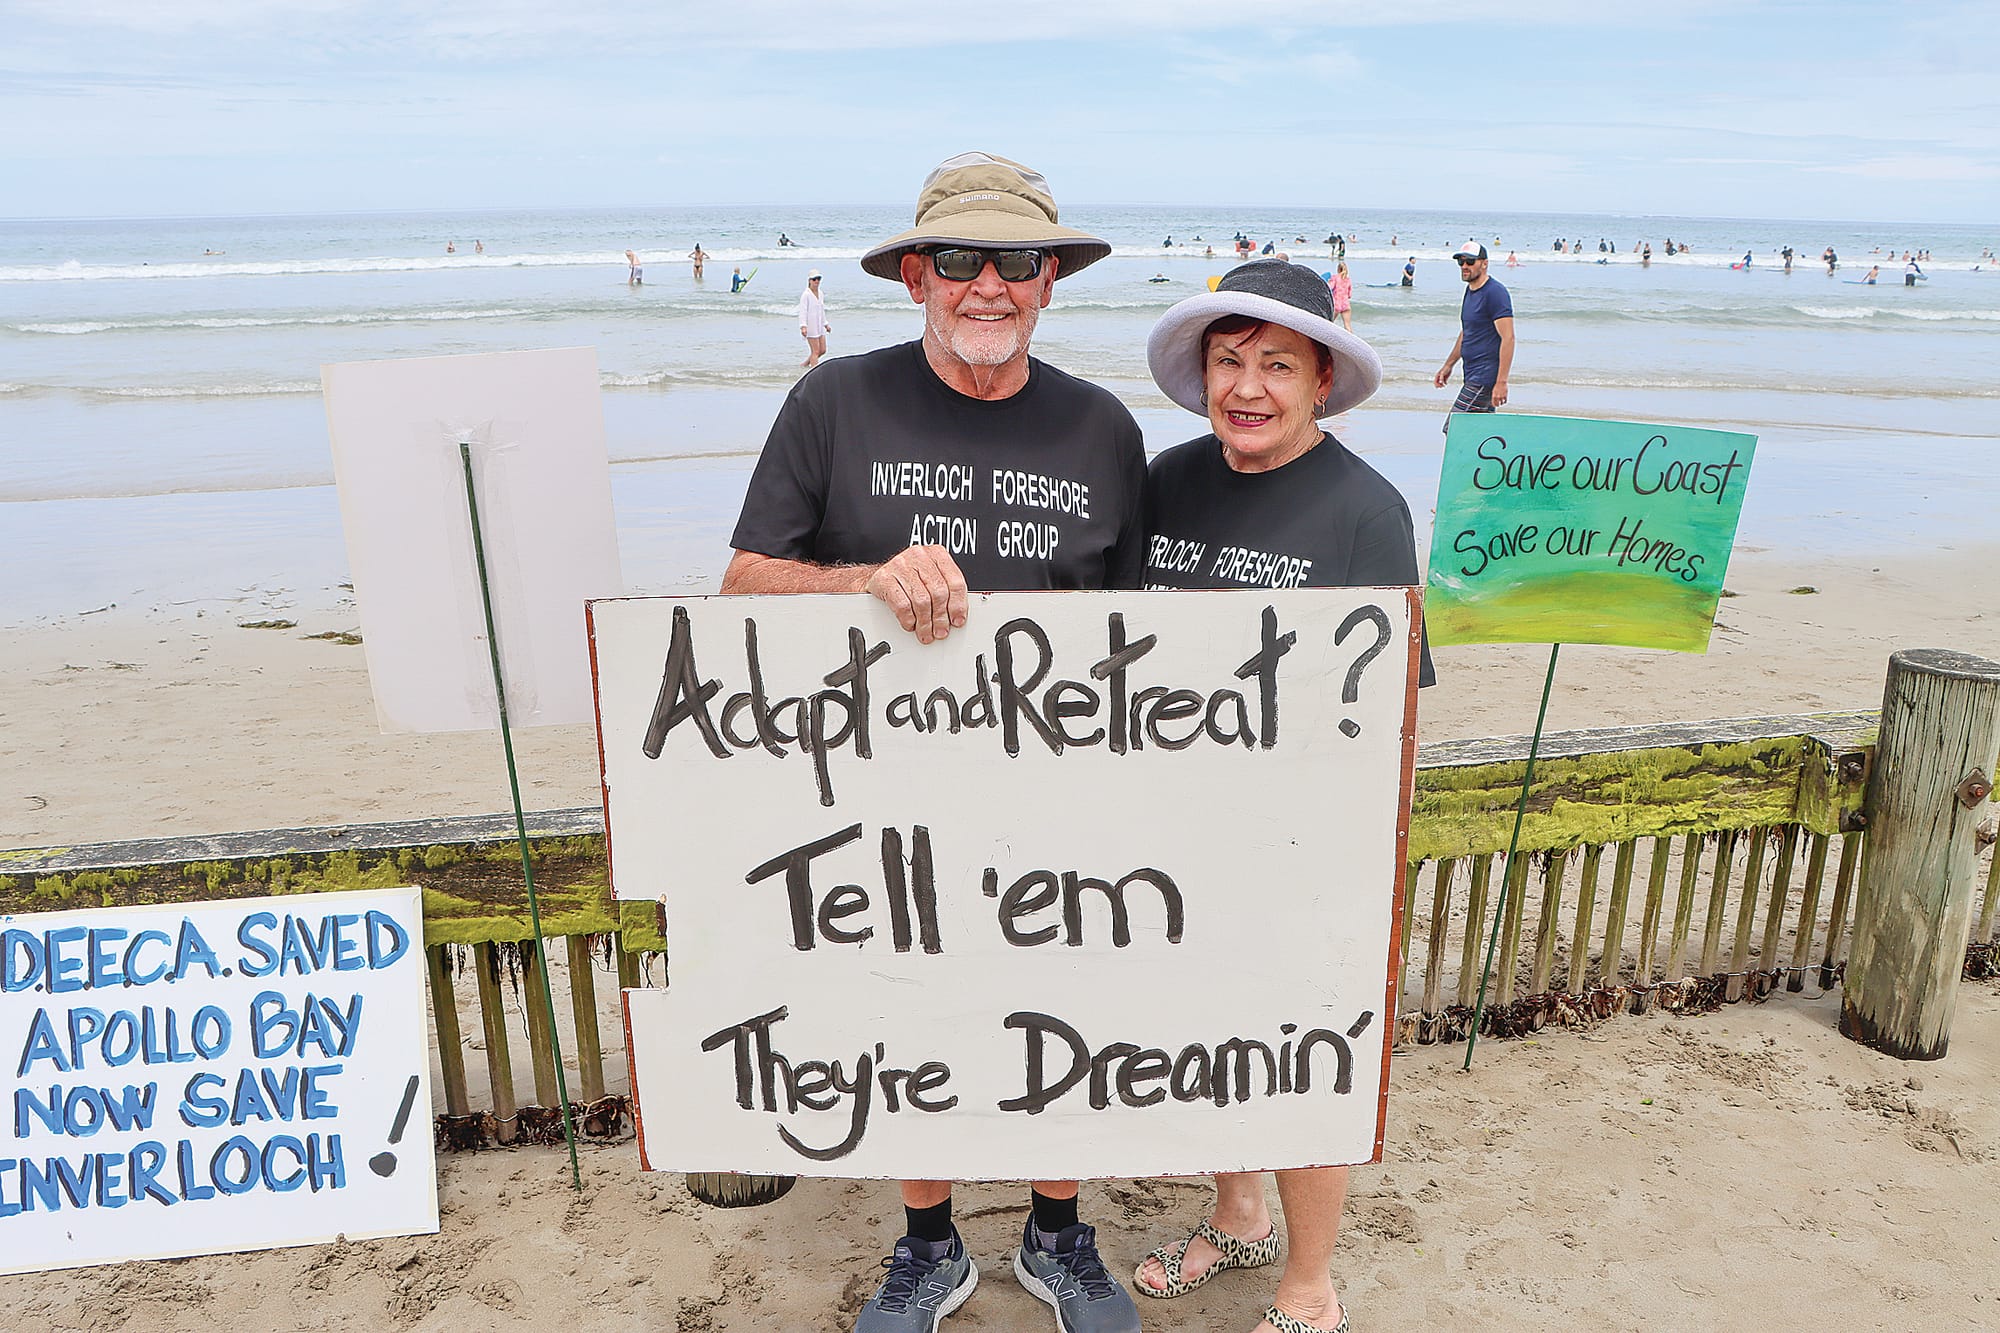 SHIMANO
INVERLOCH FORESHORE
ACTION GROUP
FORESHORE
Save our Coast
Save our Homes
Adapt and Retreat?
Tell 'em
They're Dreamin'
D.E.E.C.A. SAVED
APOLLO BAY
NOW SAVE
INVERLOCH!